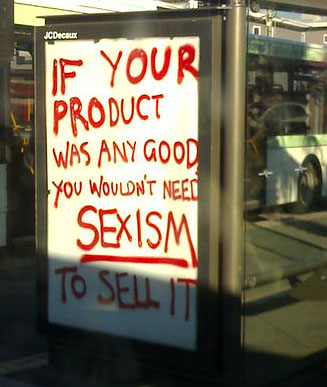 JCDecaux
IF YOUR
PRODUCT
WAS ANY GOOD
YOU WOULDN'T NEED
SEXISM
TO SELL IT